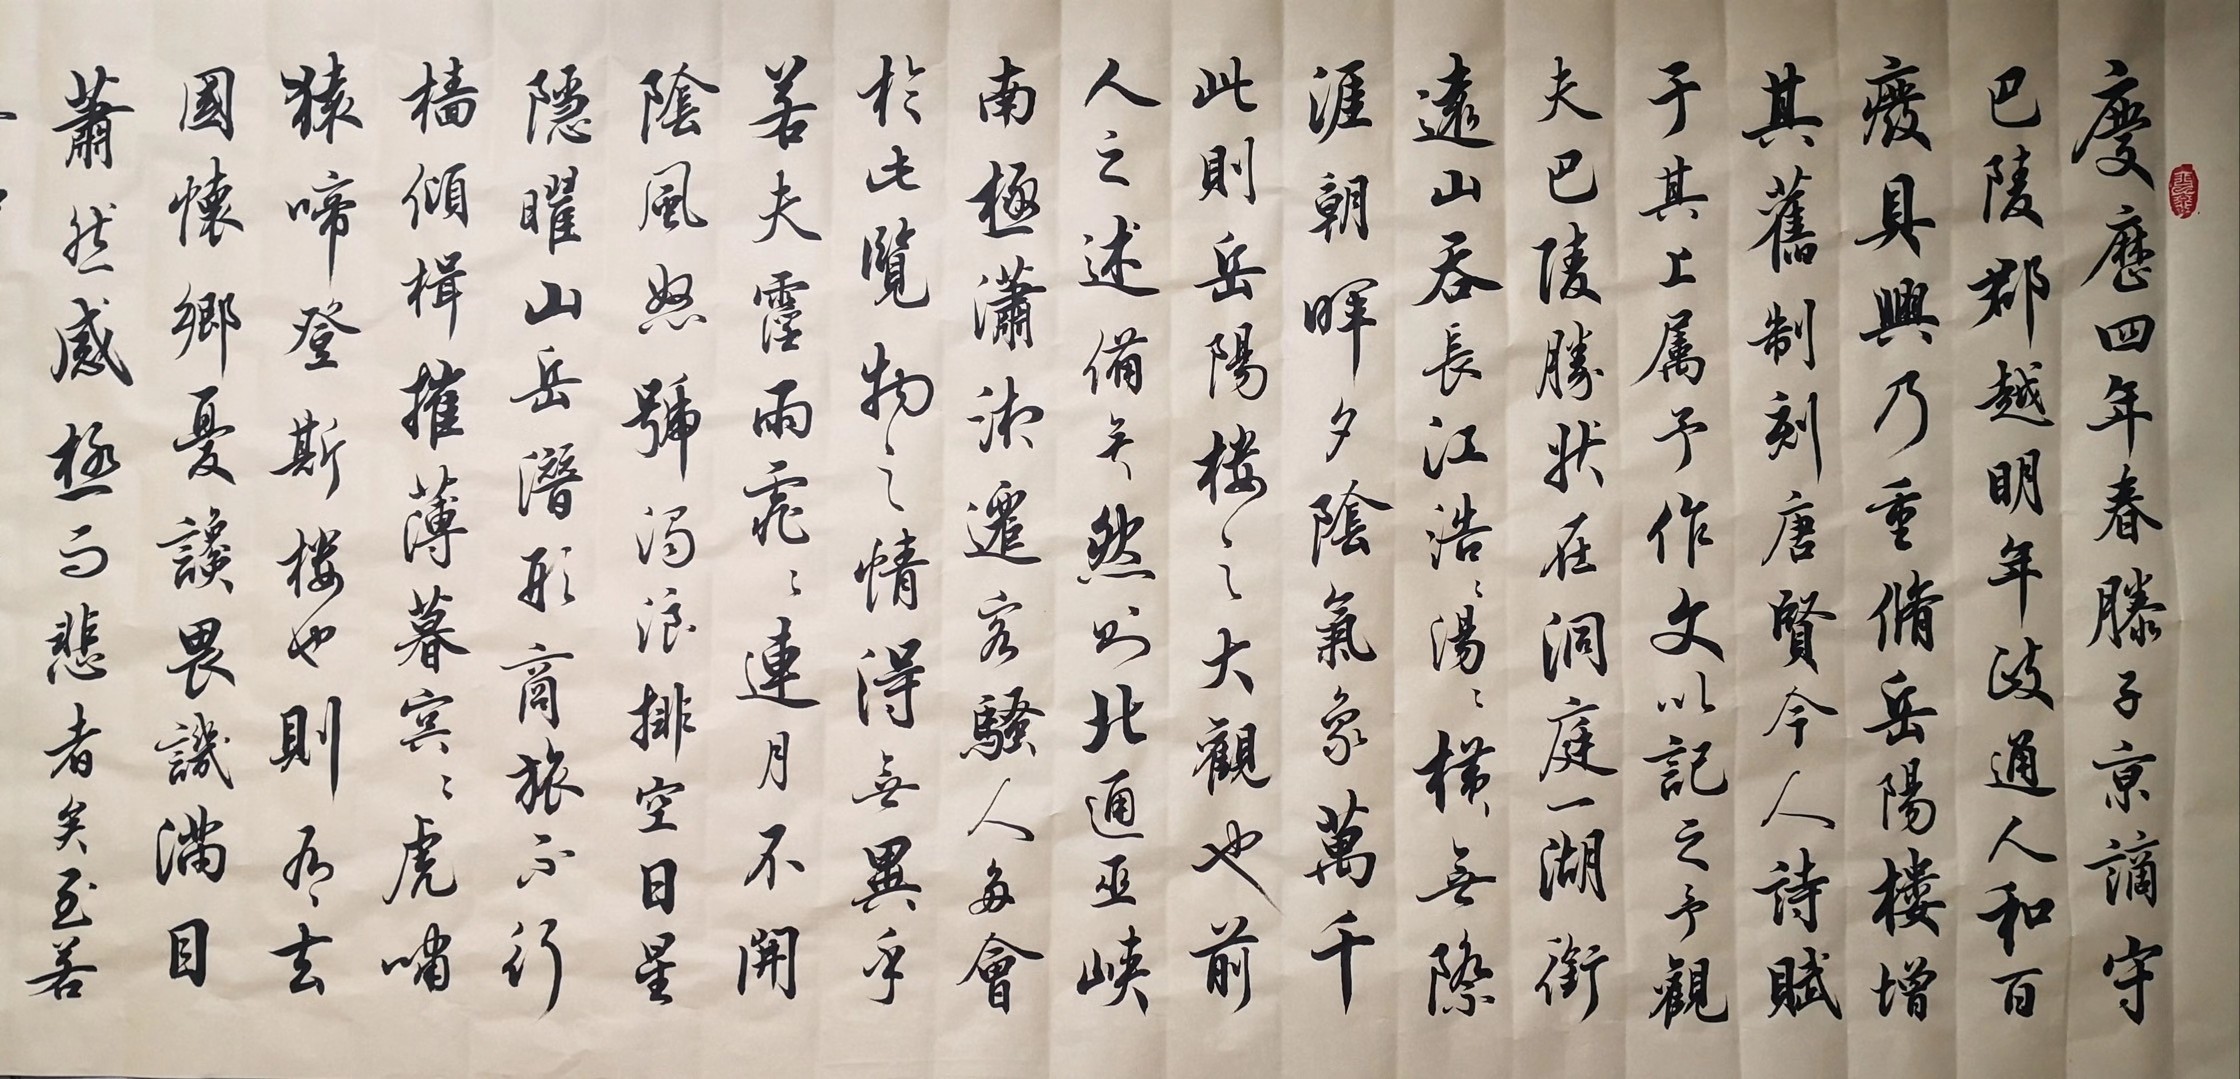 慶歷四年春滕子京謫守
巴陵郡越明年政通人和百
廢具興乃重脩岳陽樓增
其舊制刻唐賢今人詩賦
于其上属予作文以記之予觀
夫巴陵勝狀在洞庭一湖銜
遠山吞長江浩〻湯〻横無際
涯朝暉夕陰氣象萬千
此則岳陽樓之大觀也前
人之述備矣然則北通巫峽
南極瀟湘遷客騷人多會
於此覽物之情得無異乎
若夫霪雨霏〻連月不開
陰風怒號濁浪排空日星
隱曜山岳潛形商旅不行
檣傾楫摧薄暮冥〻虎嘯
猿啼登斯樓也則有去
國懷鄉憂讒畏譏滿目
蕭然感極而悲者矣至若